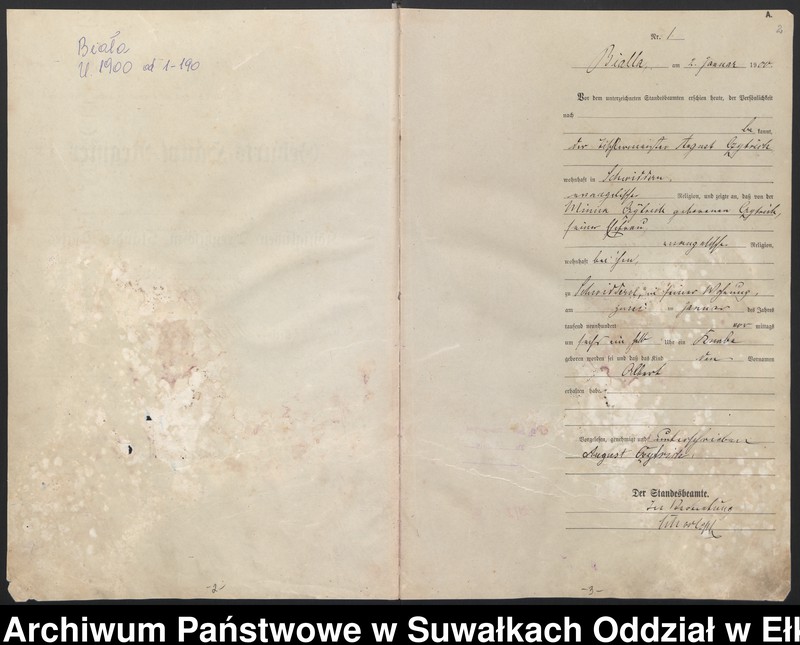 Biała
U 1900 od 1-190
A.
2
Nr. 1
Bialla, am 2. Januar 1900
Vor dem unterzeichneten Standesbeamten erschien heute, der Persönlichkeit
nach
be kannt,
der Tischlermeister August
wohnhaft in Schwiddern,
evangelischer Religion, und zeigte an, daß von der
Minna geborenen
seiner Ehefrau,
evangelischer Religion,
wohnhaft bei ihm,
zu Schwiddern, in seiner Wohnung,
am zwei ten Januar des Jahres
tausend neunhundert vor mittags
um sechs ein halb Uhr ein Knabe
geboren worden sei und daß das Kind den Vornamen
Albert
erhalten habe.
Vorgelesen, genehmigt und unterschrieben
August
Der Standesbeamte.
In Vertretung
-2-
-3-
Archiwum Państwowe w Suwałkach Oddział w Ełk